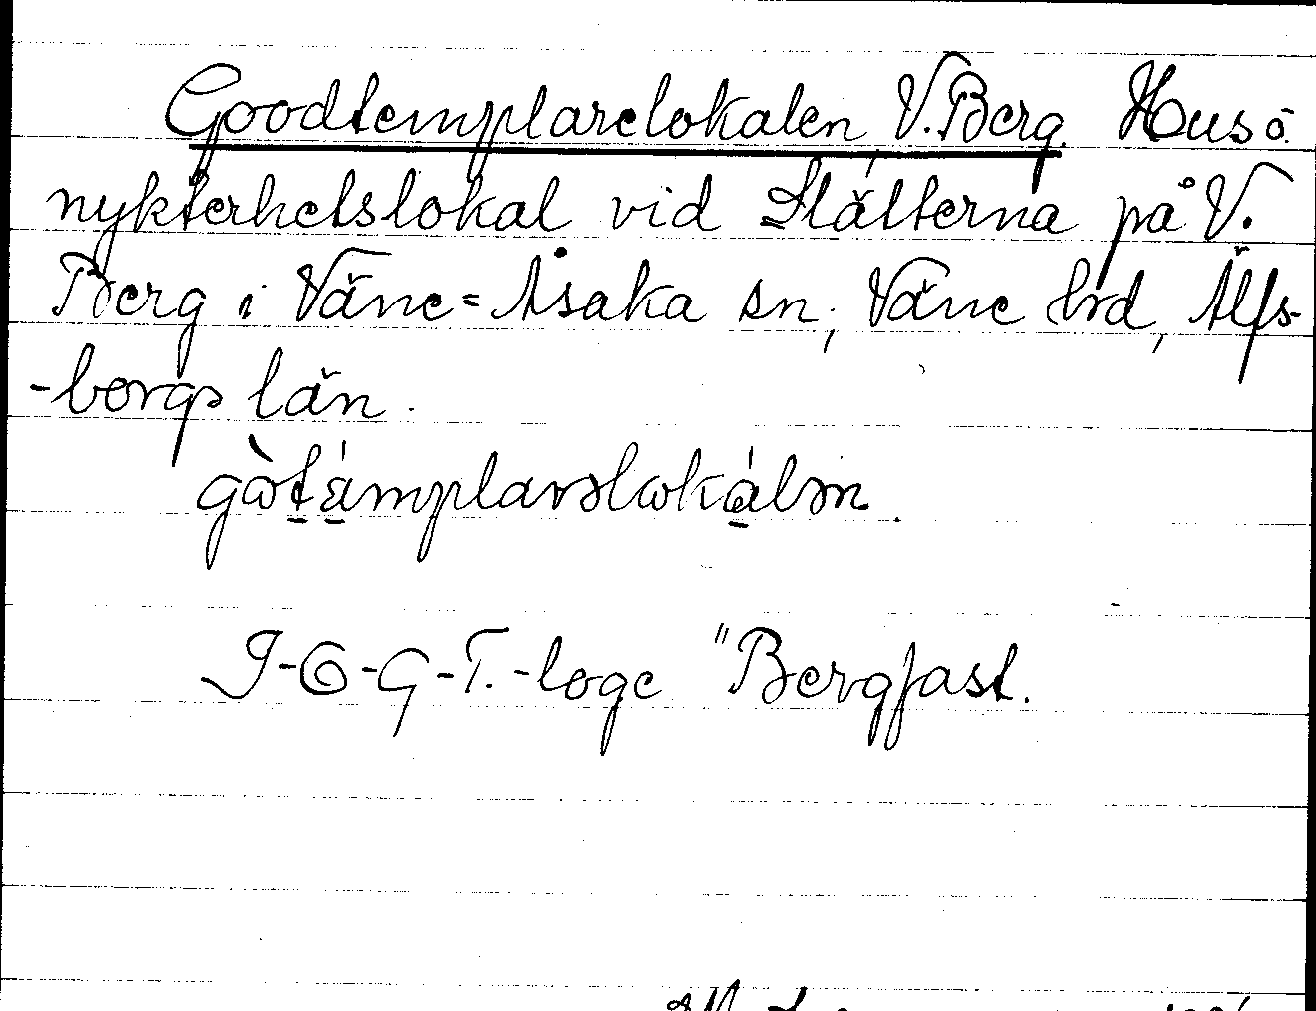 Goodtemplarelokalen, V. Berg. Hus o.
nykterhetslokal vid Slätterna på V.
Berg i Väne=Åsaka sn, Väne hrd, Älfs-
-borgs län.
gὼtámplarəlωkálən.
I-O-G-T.-loge "Bergfast.